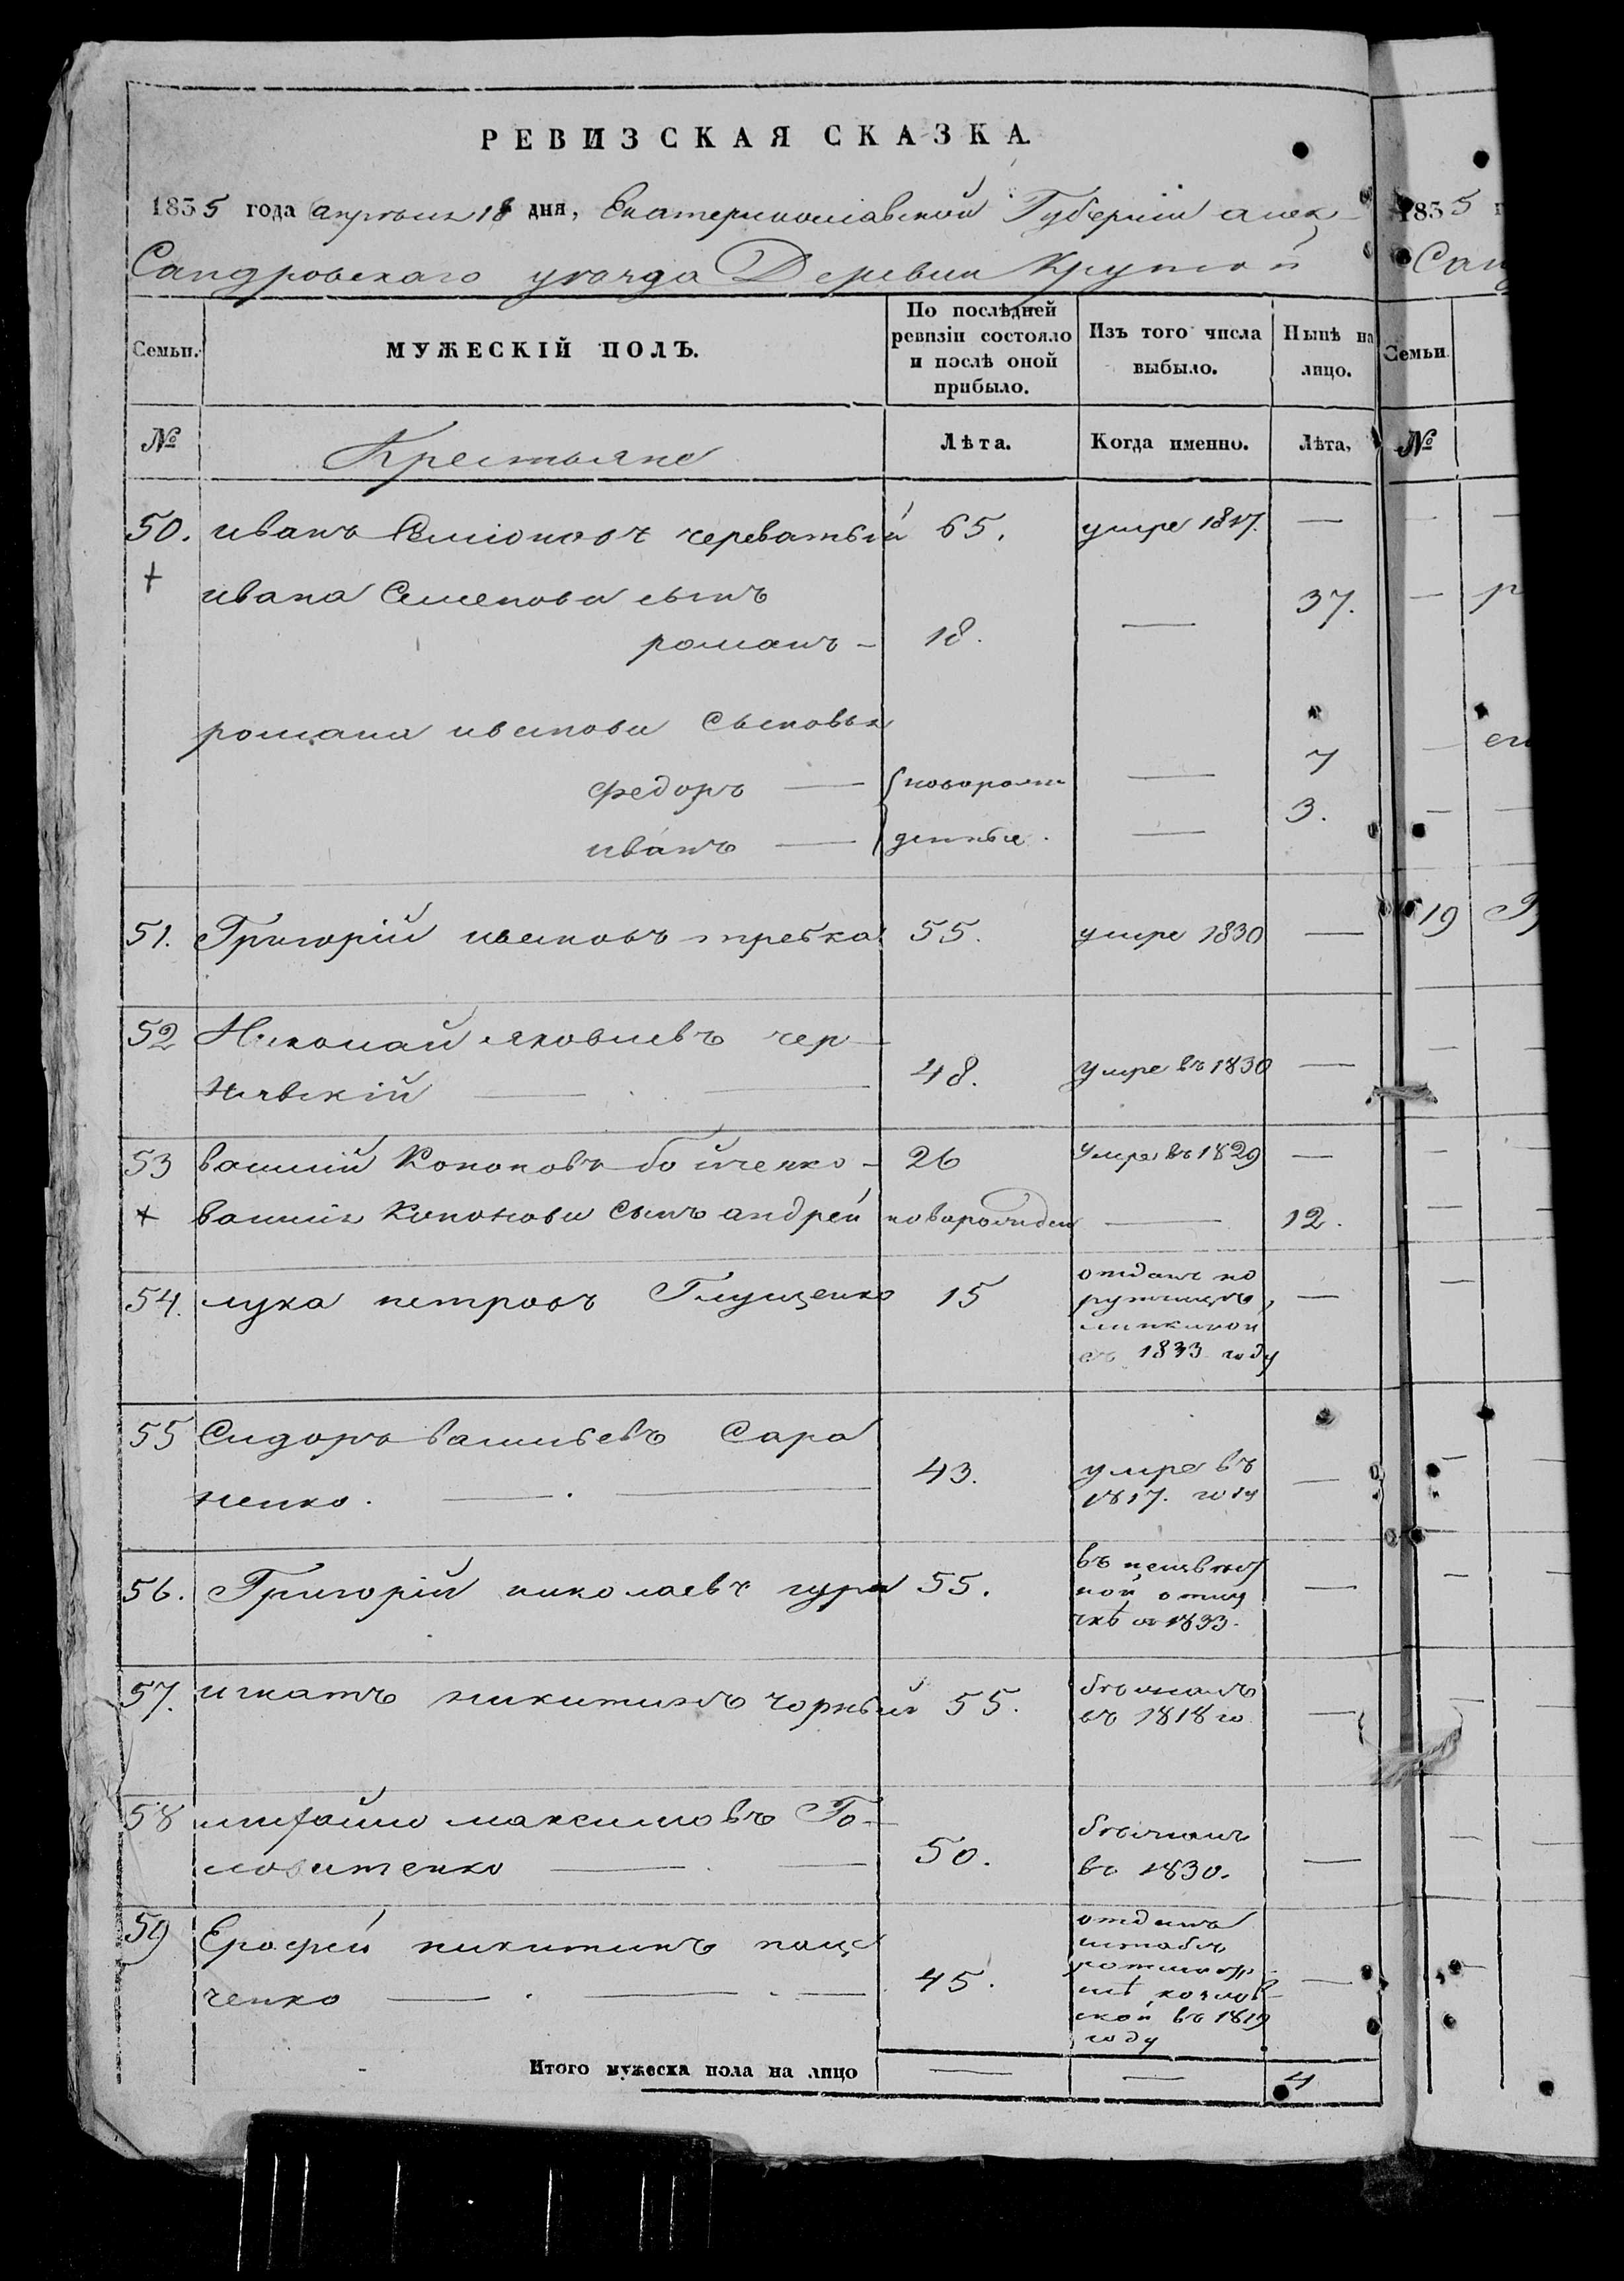 РЕВИЗСКАЯ СКАЗКА.
1835 года апреля 18 дня, Екатеринославской Губерніи алек
Сандровскаго уезда Деревни Крутой
Семьи. МУЖЕСКІЙ ПОЛЪ. По послѣдней ревизіи состояло и послѣ оной прибыло. Изъ того числа выбыло. Нынѣ на лицо.
№ Крестьяне Лѣта. Когда именно. Лѣта,
50. иванъ Семіоновъ череватый 65. умре 1817. —
+ ивана Семенова сынъ
романъ — 18. — 37.
романа иванова Сыновья
федоръ — новорож — 7
иванъ — денные. — 3.
51. Григорій ивановъ требка 55. умре 1830 —
52 Николай яковлевъ чер
нявскій — 48. умре въ 1830 —
53 василій Кононовъ бойченко — 26 Умре въ 1829 —
+ василія Кононова Сынъ андрей новорожден — 12.
54. лука петровъ Глущенко 15 отданъ по
—
въ 1833 году
55 Сидоръ васильевъ Сара
ненко. — 43. умре въ
1817. году —
56. Григорій николаевъ гура 55. въ неизвѣст
ной отлу
чкѣ въ 1833. —
57. игнатъ никитинъ чорный 55. бѣжалъ
въ 1818 го —
58 михайло максимовъ Го
ловатенко — 50. бѣжалъ
въ 1830. —
59 Ерофей никитинъ паще
ченко — 45. отданъ
штабъ
ротмистр
шѣ козлов
ской въ 1819
году —
Итого мужеска пола на лицо — — 4
1835
Сан
Семьи
№
19